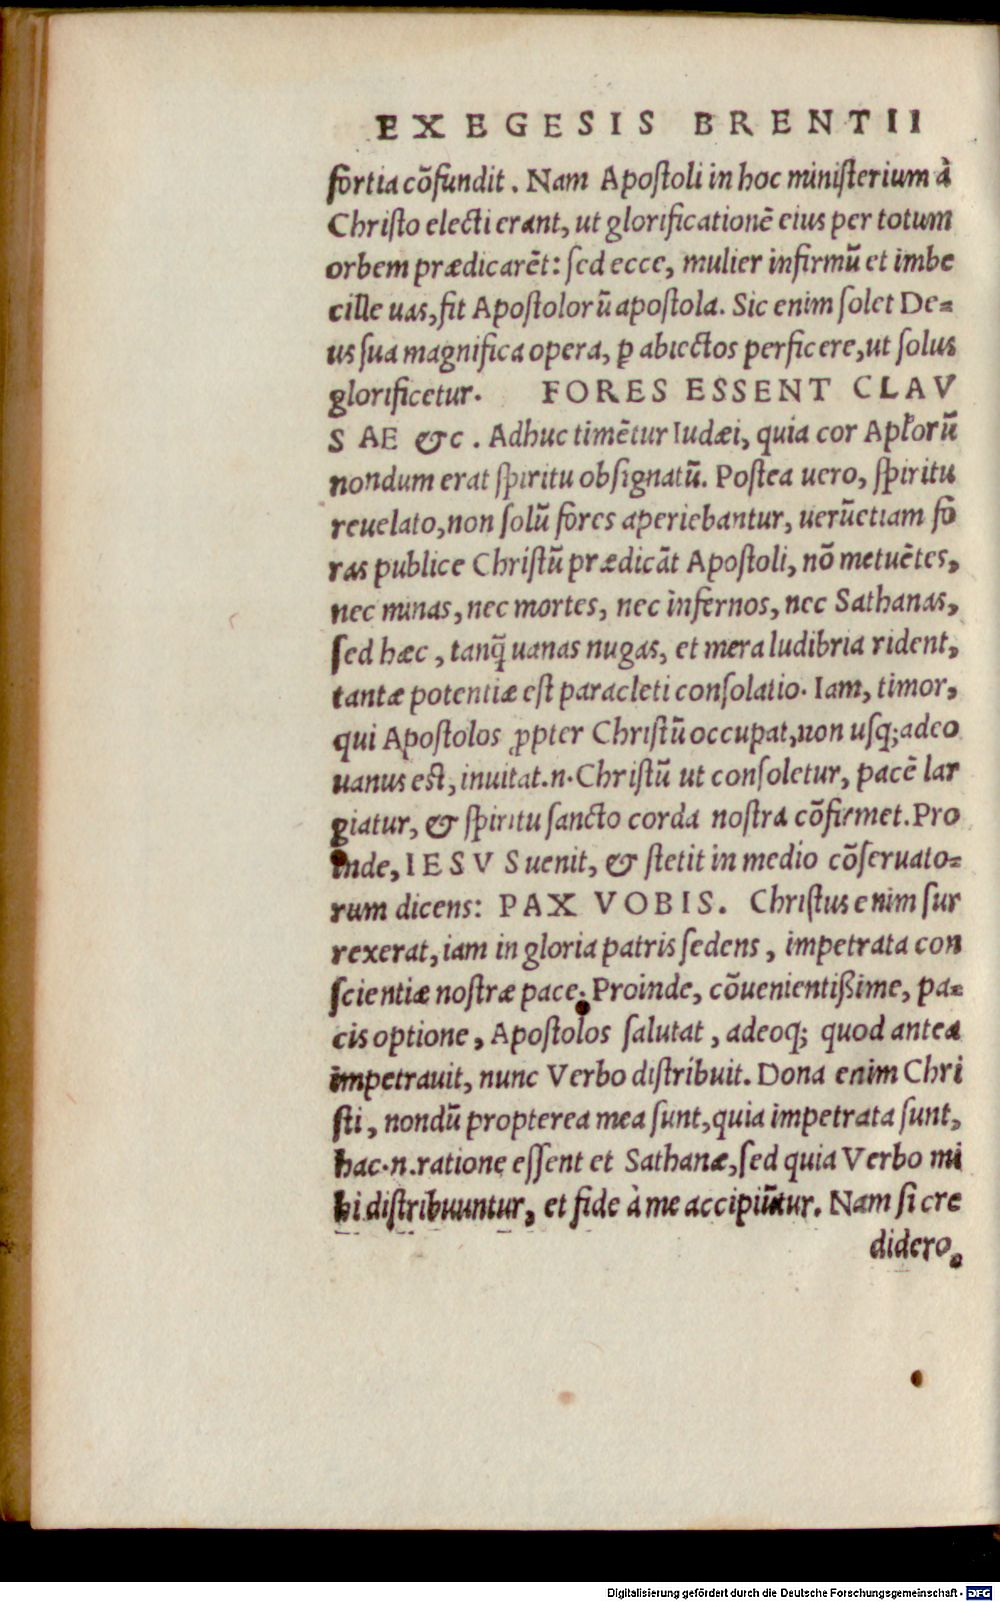 EXEGESIS BRENTII
fortia cõfundit. Nam Apostoli in hoc ministerium à
Christo electi erant, ut glorificationẽ eius per totum
orbem prædicarẽt: sed ecce, mulier infirmũ et imbe
cille uas, fit Apostolorũ apostola. Sic enim solet De=
us sua magnifica opera, ꝑ abiectos perficere, ut solus
glorificetur. FORES ESSENT CLAV
SAE &c. Adhuc timẽtur Iudæi, quia cor Apl̃orũ
nondum erat spiritu obsignatũ. Postea uero, spiritu
reuelato, non solũ fores aperiebantur, uerũetiam fo
ras publice Christũ prædicãt Apostoli, nõ metuẽtes,
nec minas, nec mortes, nec infernos, nec Sathanas,
sed hæc, tanq̃ uanas nugas, et mera ludibria rident,
tantæ potentiæ est paracleti consolatio. Iam, timor,
qui Apostolos ꝓpter Christũ occupat, non usq; adeo
uanus est, inuitat.n. Christũ ut consoletur, pacẽ lar
giatur, & spiritu sancto corda nostra cõfirmet. Pro
inde, IESVS uenit, & stetit in medio cõseruato=
rum dicens: PAX VOBIS. Christus enim sur
rexerat, iam in gloria patris sedens, impetrata con
scientiæ nostræ pace. Proinde, cõuenientißime, pa=
cis optione, Apostolos salutat, adeoq; quod antea
impetrauit, nunc Verbo distribuit. Dona enim Chri
sti, nondũ propterea mea sunt, quia impetrata sunt,
hac.n. ratione essent et Sathanæ, sed quia Verbo mi
hi distribuuntur, et fide à me accipiũtur. Nam si cre
didero,
Digitalisierung gefördert durch die Deutsche Forschungsgemeinschaft - DFG